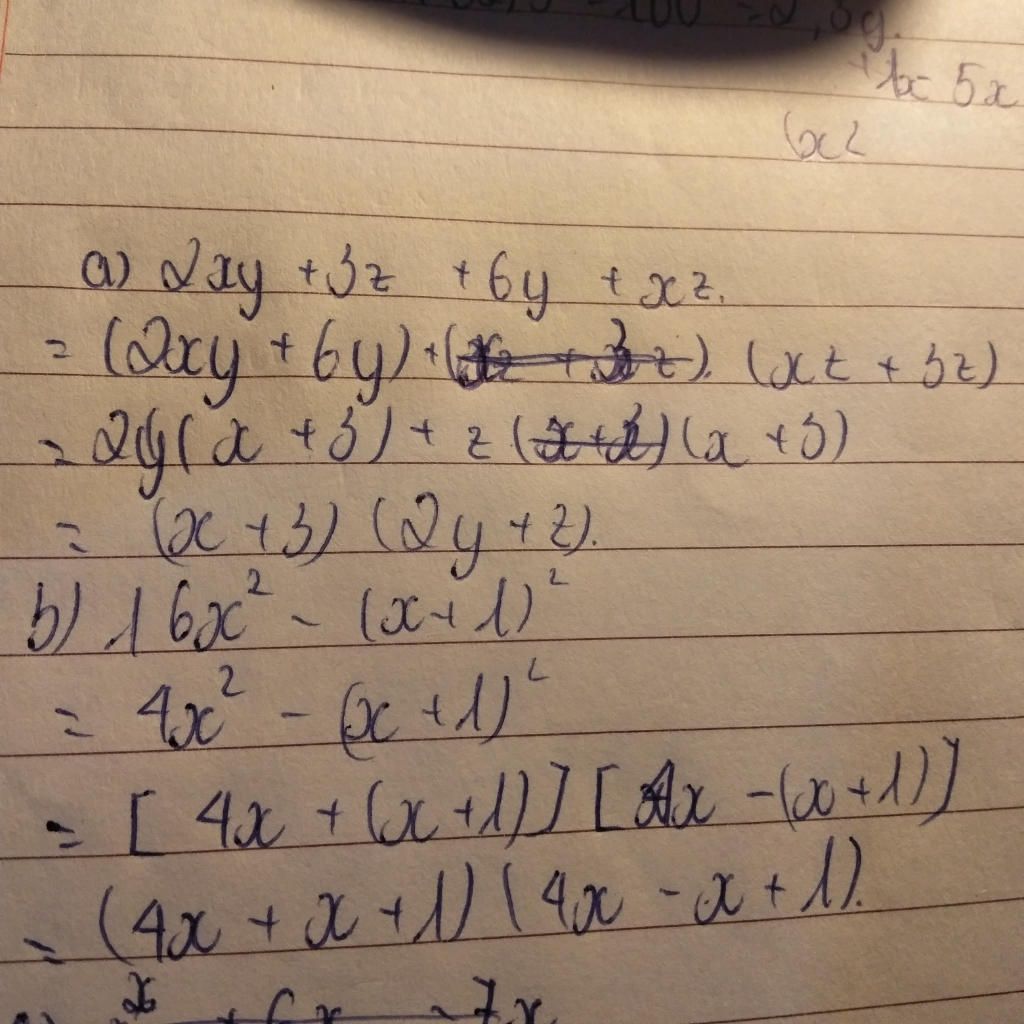 = 2,8y.
5x
(x2
a) 2xy + 3z + 6y + xz.
= (2xy + 6y) + (xz + 3z). (xz + 3z)
= 2y(x + 3) + z (x+3) (x + 3)
= (x + 3) (2y + z).
b) 16x² - (x + 1)²
= 4x² - (x + 1)²
= [4x + (x + 1)] [4x - (x + 1)]
= (4x + x + 1) (4x - x + 1).
+ 6x - 7x